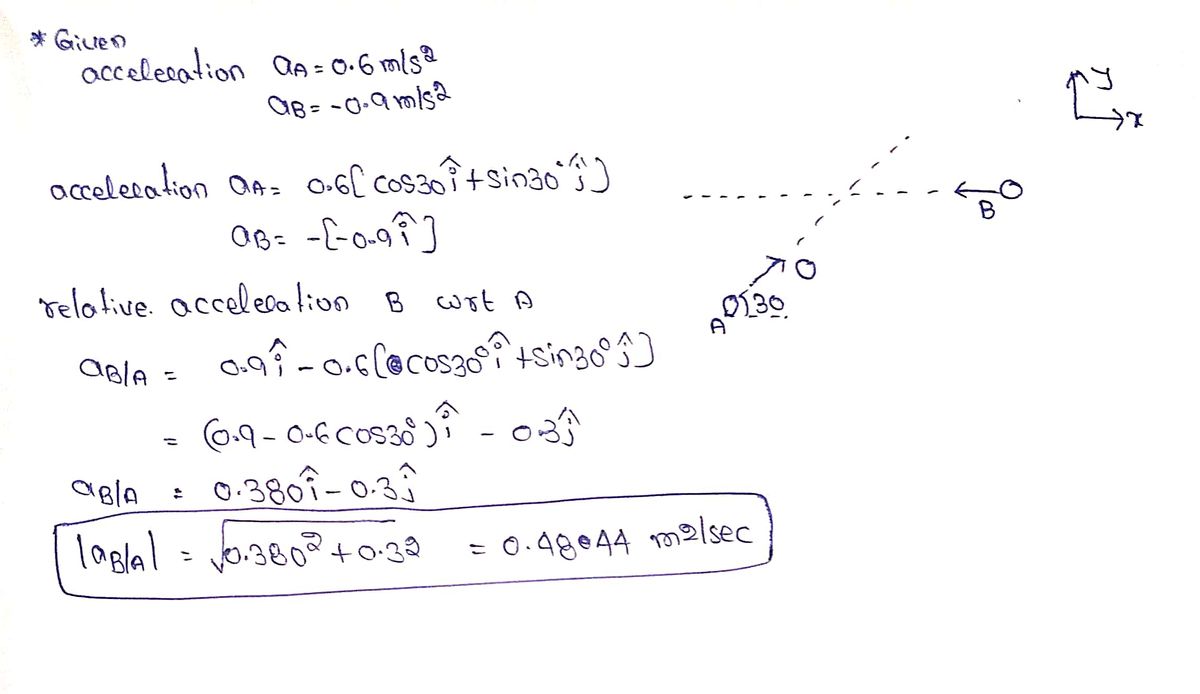 * Given
acceleration aA = 0.6 m/s2
aB = -0.9 m/s2
acceleration aA = 0.6[cos30 î + sin30° ĵ]
aB = -[-0.9 î]
relative. acceleration B wrt A
aB/A = 0.9 î - 0.6[cos30° î + sin30° ĵ]
= (0.9 - 0.6 cos30°) î - 0.3 ĵ
aB/A = 0.380 î - 0.3 ĵ
|aB/A| = √0.380² + 0.32 = 0.48044 m2/sec
y
x
B
30
A